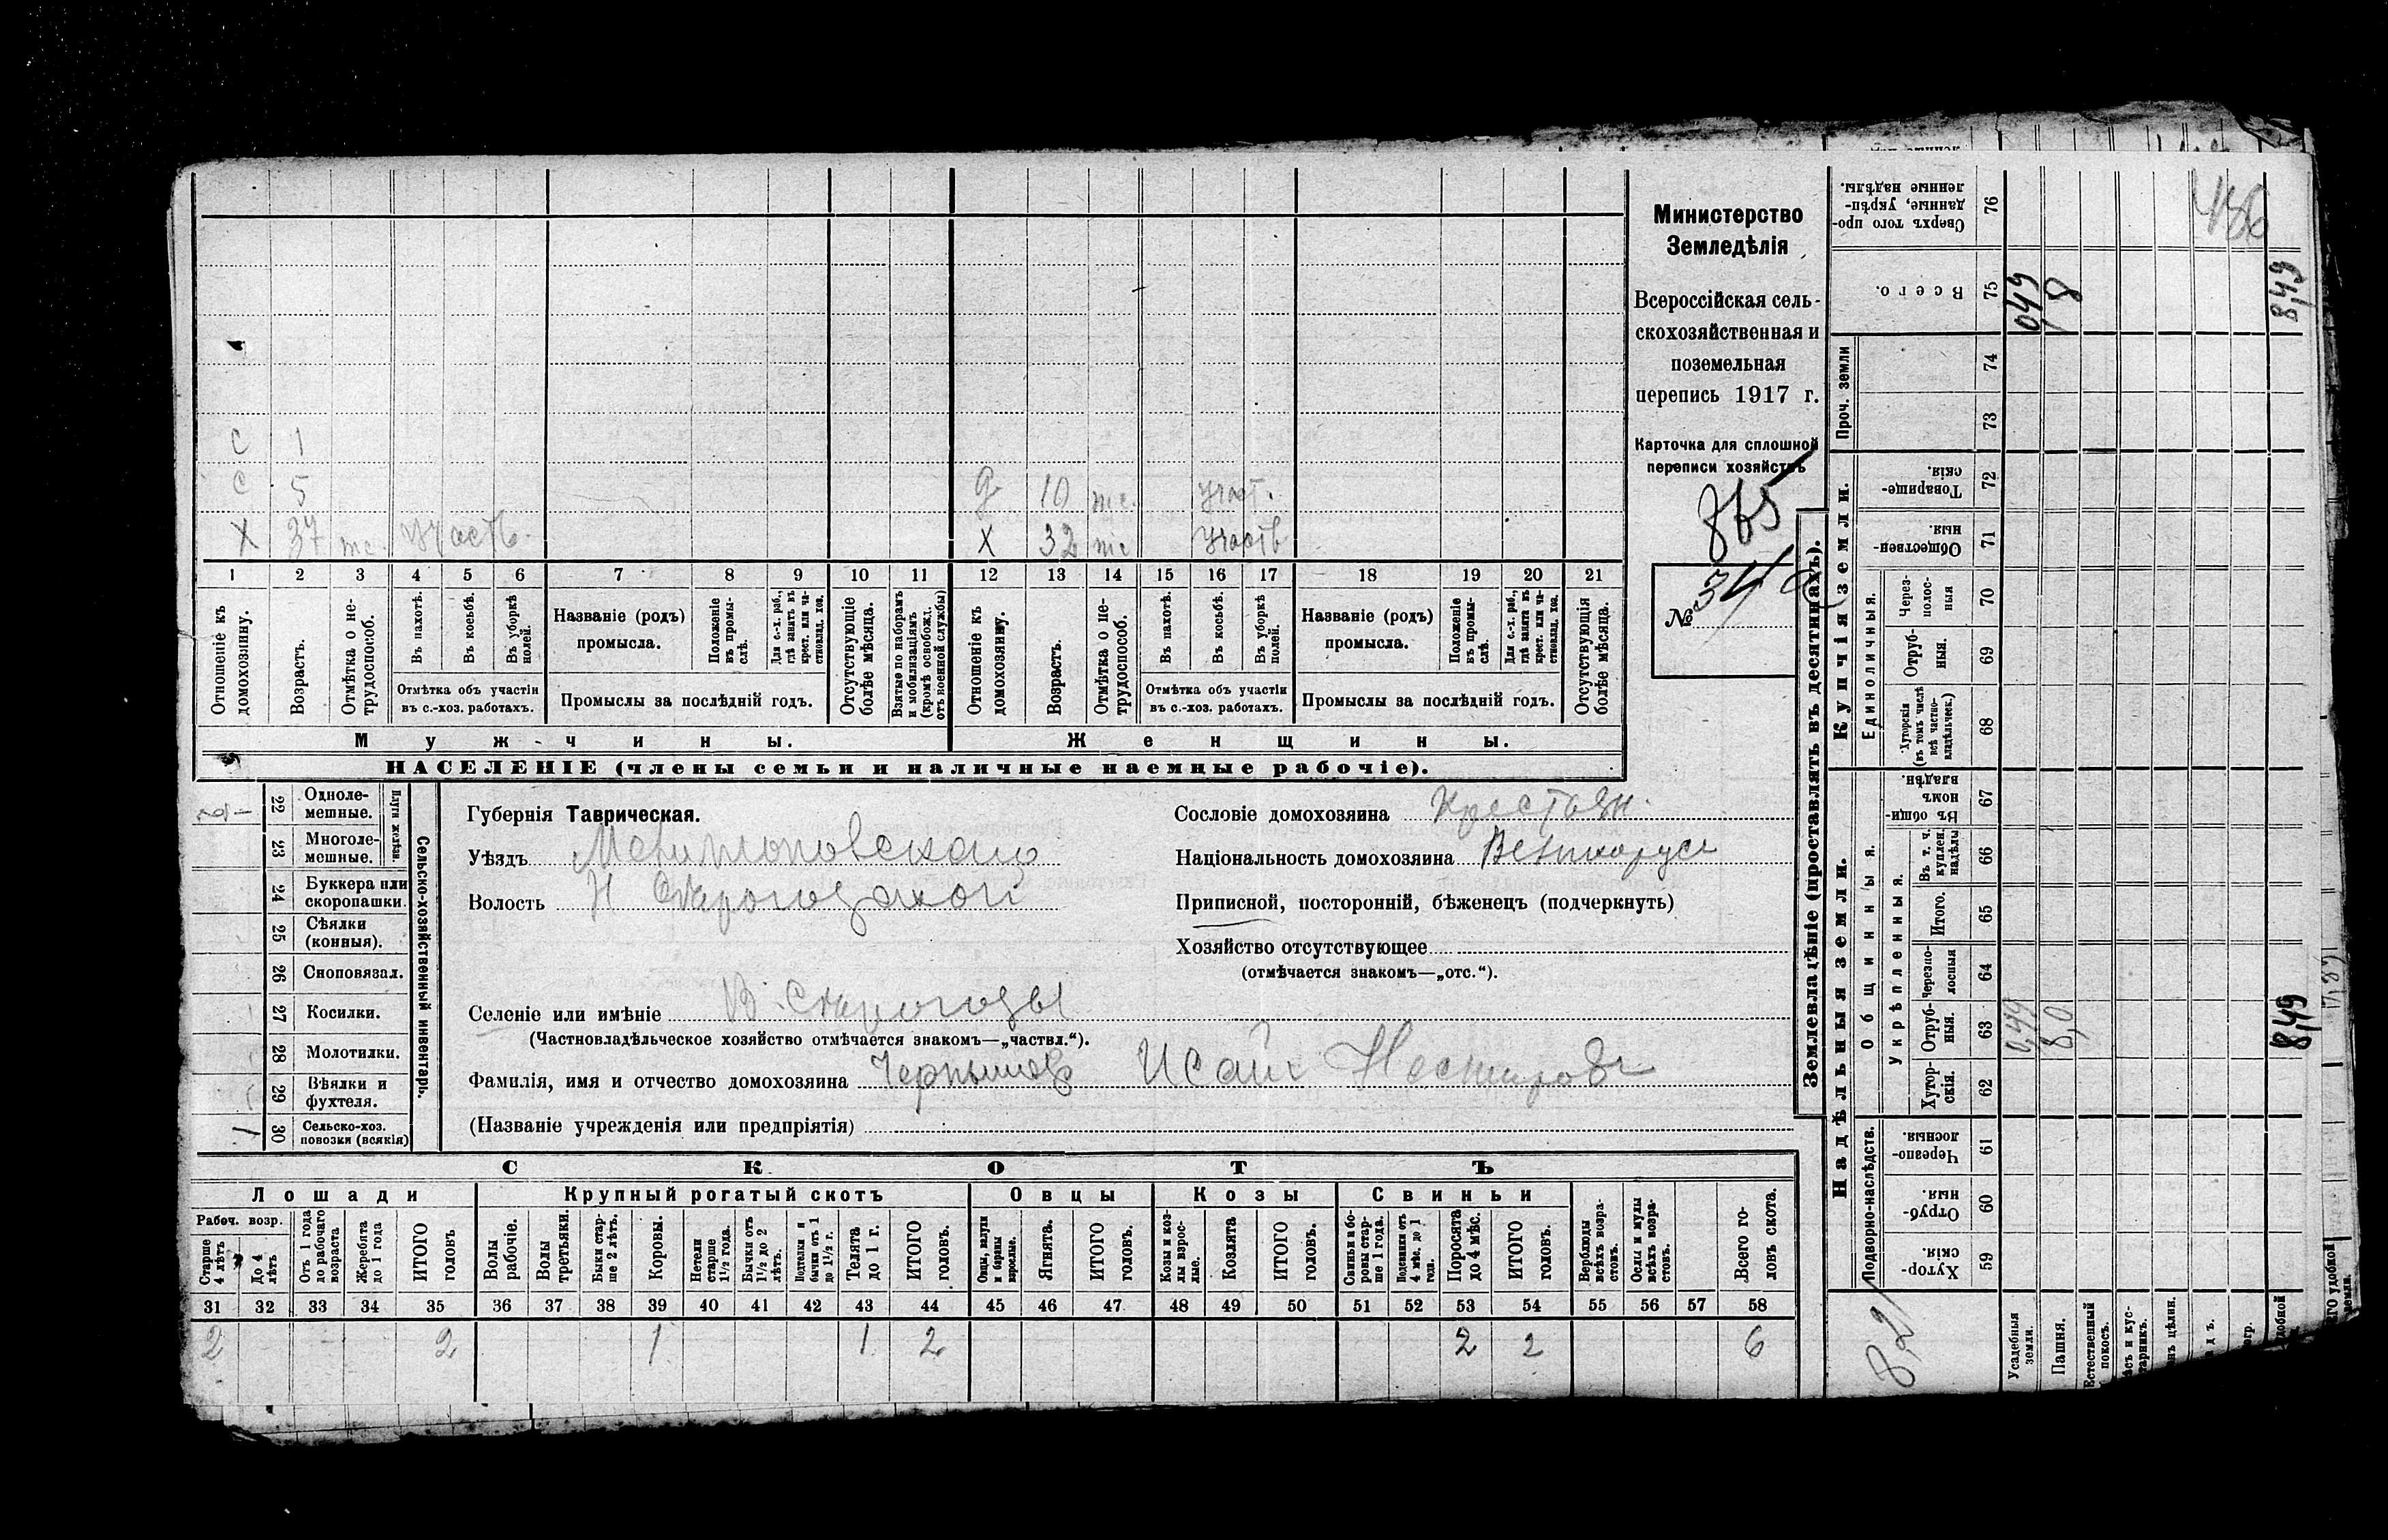 Министерство
Земледѣлія
Всероссійская сель-
скохозяйственная и
поземельная
перепись 1917 г.
Карточка для сплошной
переписи хозяйствъ
865
№ 34
с 1
с 5
д 10 участ.
Х 37 участв.
Х 32 участв
1 2 3 4 5 6 7 8 9 10 11 12 13 14 15 16 17 18 19 20 21
Отношеніе къ домохозяину.
Возрастъ.
Отмѣтка о не-трудоспособ.
Въ пахотѣ.
Въ косьбѣ.
Въ уборкѣ полей.
Отмѣтка объ участіи
въ с.-хоз. работахъ.
Названіе (родъ)
промысла.
Положеніе въ промы-слѣ.
Для с.-х. раб., гдѣ занятъ въ крест. или ча-стновлад. хоз.
Промыслы за послѣдній годъ.
Отсутствующіе болѣе мѣсяца.
Взятые по наборамъ и мобилизаціямъ (кромѣ освобожд. отъ военной службы)
Отношеніе къ домохозяину.
Возрастъ.
Отмѣтка о не-трудоспособ.
Въ пахотѣ.
Въ косьбѣ.
Въ уборкѣ полей.
Отмѣтка объ участіи
въ с.-хоз. работахъ.
Названіе (родъ)
промысла.
Положеніе въ промы-слѣ.
Для с.-х. раб., гдѣ занятъ въ крест. или ча-стновлад. хоз.
Промыслы за послѣдній годъ.
Отсутствующія болѣе мѣсяца.
Мужчины.
Женщины.
НАСЕЛЕНІЕ (члены семьи и наличные наемные рабочіе).
22 Одноле-мешные.
23 Многоле-мешные.
Плуги желѣзн.
24 Буккера или скоропашки.
25 Сѣялки (конныя).
26 Сноповязал.
27 Косилки.
28 Молотилки.
29 Вѣялки и фухтеля.
30 Сельско-хоз. повозки (всякія) 1
Сельско-хозяйственный инвентарь.
Губернія Таврическая.
Уѣздъ Мелитопольскаго
Волость
Селеніе или имѣніе В. Серогозы
(Частновладѣльческое хозяйство отмѣчается знакомъ—„частвл.“).
Фамилія, имя и отчество домохозяина Чернышов Исай Несторов
(Названіе учрежденія или предпріятія)
Сословіе домохозяина Крестьян.
Національность домохозяина Великорусс
Приписной, посторонній, бѣженецъ (подчеркнуть)
Хозяйство отсутствующее
(отмѣчается знакомъ—„отс.“).
СКОТЪ
Лошади
Крупный рогатый скотъ
Овцы
Козы
Свиньи
Рабоч. возр.
Старше 4 лѣтъ
До 4 лѣтъ
Отъ 1 года до рабочаго возраста
Жеребята до 1 года
ИТОГО головъ
Волы рабочіе.
Волы третьяки.
Быки стар-ше 2 лѣтъ.
Коровы.
Нетели старше 1½ года.
Бычки отъ 1½ до 2 лѣтъ.
Подтелки и бычки отъ 1 до 1½ г.
Телята до 1 г.
ИТОГО головъ.
Овцы, валухи и бараны взрослые.
Ягнята.
ИТОГО головъ.
Козы и коз-лы взрос-лые.
Козлята
ИТОГО головъ.
Свиньи и бо-ровы стар-ше 1 года.
Подсвинки отъ 4 мѣс. до 1 года.
Поросята до 4 мѣс.
ИТОГО головъ.
Верблюды всѣхъ возра-стовъ.
Ослы и мулы всѣхъ возра-стовъ.
Всего го-ловъ скота.
31 32 33 34 35 36 37 38 39 40 41 42 43 44 45 46 47 48 49 50 51 52 53 54 55 56 57 58
2 2 1 1 2 2 2 6
Землевладѣніе (проставлять въ десятинахъ).
Надѣльныя земли.
Купчія земли.
Проч. земли
Подворно-наслѣдств.
Общинныя.
Укрѣпленныя.
Единоличныя.
59 Хутор-скія.
60 Отруб-ныя.
61 Черезпо-лосныя
62 Хутор-скія.
63 Отруб-ныя. 0,49 8,0
64 Черезпо-лосныя
65 Итого.
66 Въ т. ч. куплен. надѣлы
67 Въ общин-номъ владѣн.
68 Хуторскія (въ томъ числѣ всѣ частно-владѣльческ.)
69 Отруб-ныя.
70 Через-полос-ныя
71 Обществен-ныя
72 Товарище-скія.
73
74
75 Всего. 0,49 8
76 Сверхъ того про-данные, укрѣп-ленные надѣлы.
8,49
8,49
Усадебныя земли.
Пашня.
Естественный покосъ.
8,2